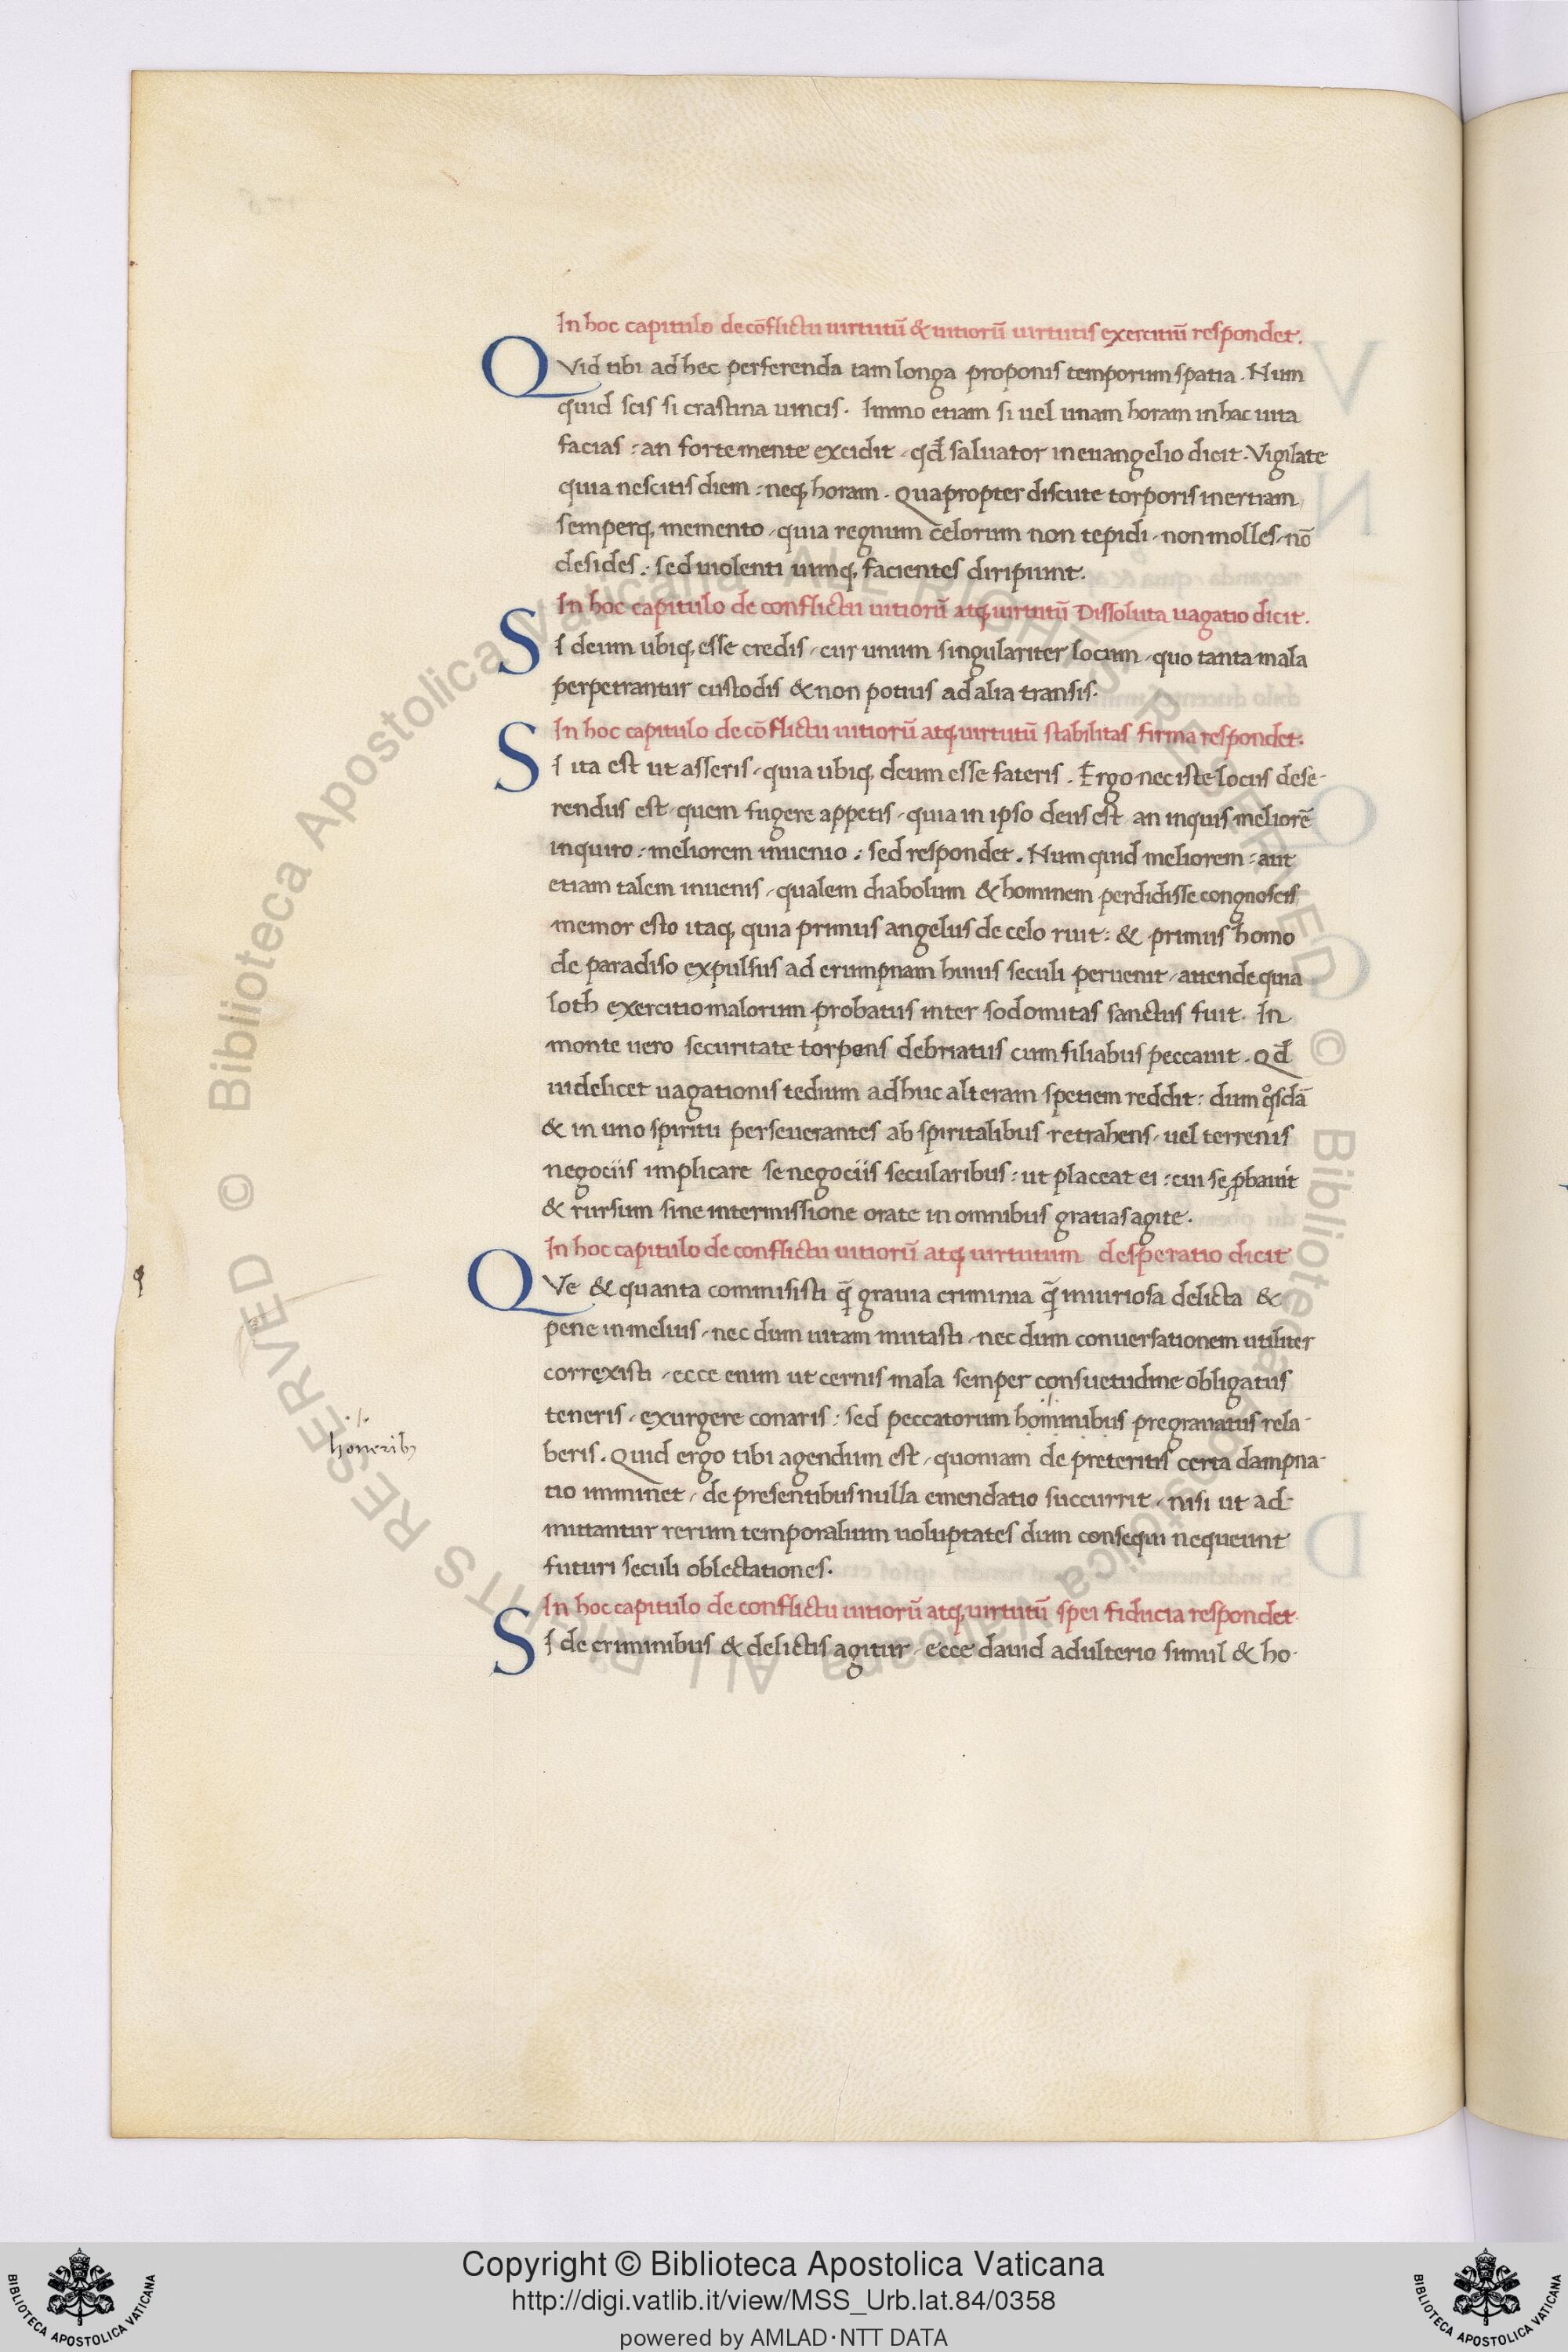 In hoc capitulo de cõflictu uirtutũ & uitiorũ uirtutis exercitiũ respondet.
QVid tibi ad hec perferenda tam longa proponis temporum spatia. Num
quid scis si crastina uincis. Immo etiam si uel unam horam in hac uita
facias : an forte mente excidit / qd̄ saluator in euangelio dicit. Vigilate
quia nescitis diem : neq; horam. Quapropter discute torporis inertiam
semperq; memento / quia regnum celorum non tepidi / non molles / nō
desides : sed uiolenti uimq; facientes diripiunt.
In hoc capitulo de conflictu uitiorũ atq; uirtutũ Dissoluta uagatio dicit.
SI deum ubiq; esse credis / cur unum singulariter locum / quo tanta mala
perpetrantur custodis & non potius ad alia transis.
In hoc capitulo de cōflictu uitiorũ atq; uirtutũ stabilitas firma respondet.
SI ita est ut asseris / quia ubiq; deum esse fateris. Ergo nec iste locus dese-
rendus est / quem fugere appetis / quia in ipso deus est an inquis meliorē
inquiro : meliorem inuenio : sed respondet. Num quid meliorem : aut
etiam talem inuenis / qualem diabolum & hominem perdidisse congnoscis
memor esto itaq; quia primus angelus de celo ruit : & primus homo
de paradiso expulsus ad erumpnam huius seculi peruenit / attende quia
loth exercitio malorum probatus inter sodomitas sanctus fuit. In
monte uero securitate torpens debriatus cum filiabus peccauit. Qd̄
uidelicet uagationis tedium adhuc alteram spetiem reddit : dum qͦsdā
& in uno spiritu perseuerantes ab spiritalibus retrahens / uel terrenis
negociis implicare se negociis secularibus : ut placeat ei : cui se ꝓbauit
& rursum sine intermissione orate in omnibus gratias agite.
In hoc capitulo de conflictu uitiorũ atq; uirtutum desperatio dicit
QVe & quanta commisisti q̄ grauia criminia q̄ iniuriosa delicta &
pene in melius / nec dum uitam mutasti / nec dum conuersationem utiliter
correxisti / ecce enim ut cernis mala semper consuetudine obligatus
teneris / exurgere conaris : sed peccatorum hominibus pregrauatus rela-
honerib;
beris. Quid ergo tibi agendum est / quoniam de preteritis certa dampna-
tio imminet / de presentibus nulla emendatio succurrit / nisi ut ad-
mittantur rerum temporalium uoluptates dum consequi nequeunt
futuri seculi oblectationes.
In hoc capitulo de conflictu uitiorũ atq; uirtutũ spei fiducia respondet
SI de criminibus & delictis agitur / ecce dauid adulterio simul & ho-
Copyright © Biblioteca Apostolica Vaticana
http://digi.vatlib.it/view/MSS_Urb.lat.84/0358
powered by AMLAD·NTT DATA
BIBLIOTECA APOSTOLICA VATICANA
BIBLIOTECA APOSTOLICA VATICANA
© Biblioteca Apostolica Vaticana ALL RIGHTS RESERVED
© Biblioteca Apostolica Vaticana ALL RIGHTS RESERVED